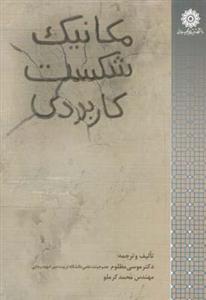 مکانیک
شکست
کاربردی
تألیف و ترجمه:
دکتر موسی مظلوم عضو هیئت علمی دانشگاه تربیت دبیر شهید رجایی
مهندس محمد کرملو